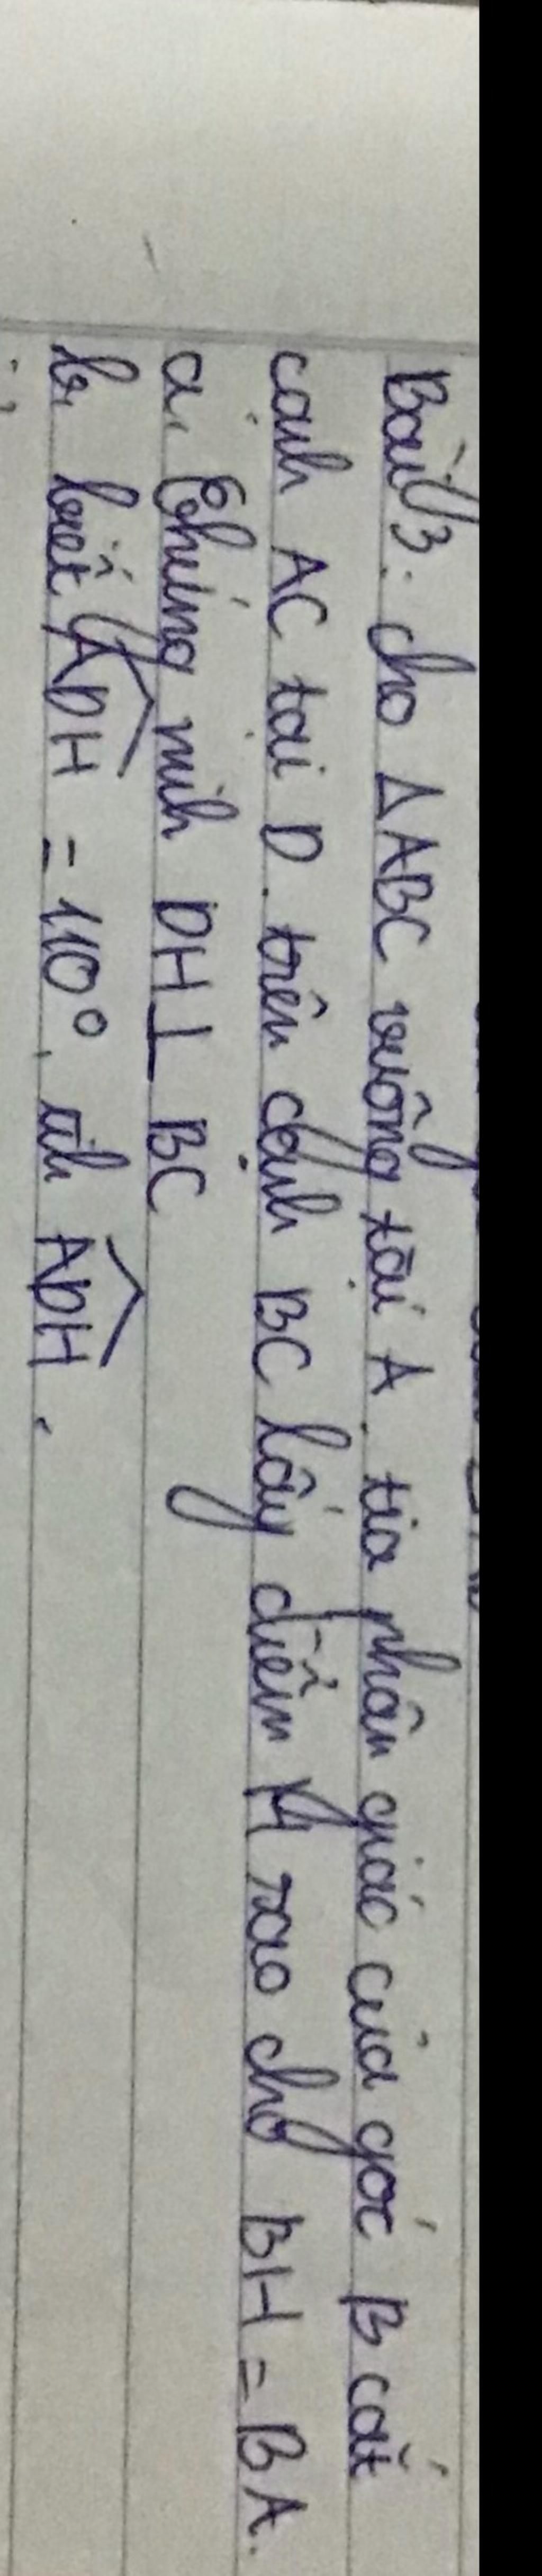 Bài 3. cho ΔABC vuông tại A. tia phân giác của góc B cắt
cạnh AC tại D. trên cạnh BC lấy điểm H sao cho BH = BA.
a, Chứng mih DH ⊥ BC
b, biết \widehat{ADH} = 110°, tíh \widehat{ADH}.